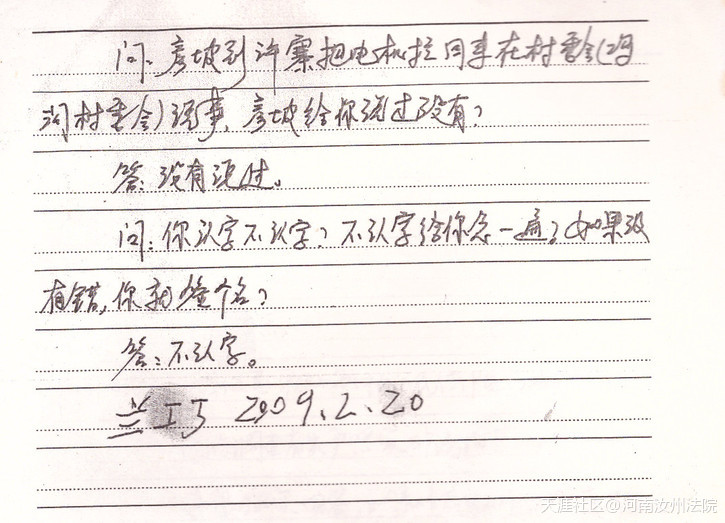 问：彦坡到许寨把电机拉回来在村委会（冯
沟村委会）说事，彦坡给你说过没有？
答：没有说过。
问：你认字不认字？不认字给你念一遍？如果没
有错，你就签个名？
答：不认字。
兰 2009.2.20
天涯社区@河南汝州法院